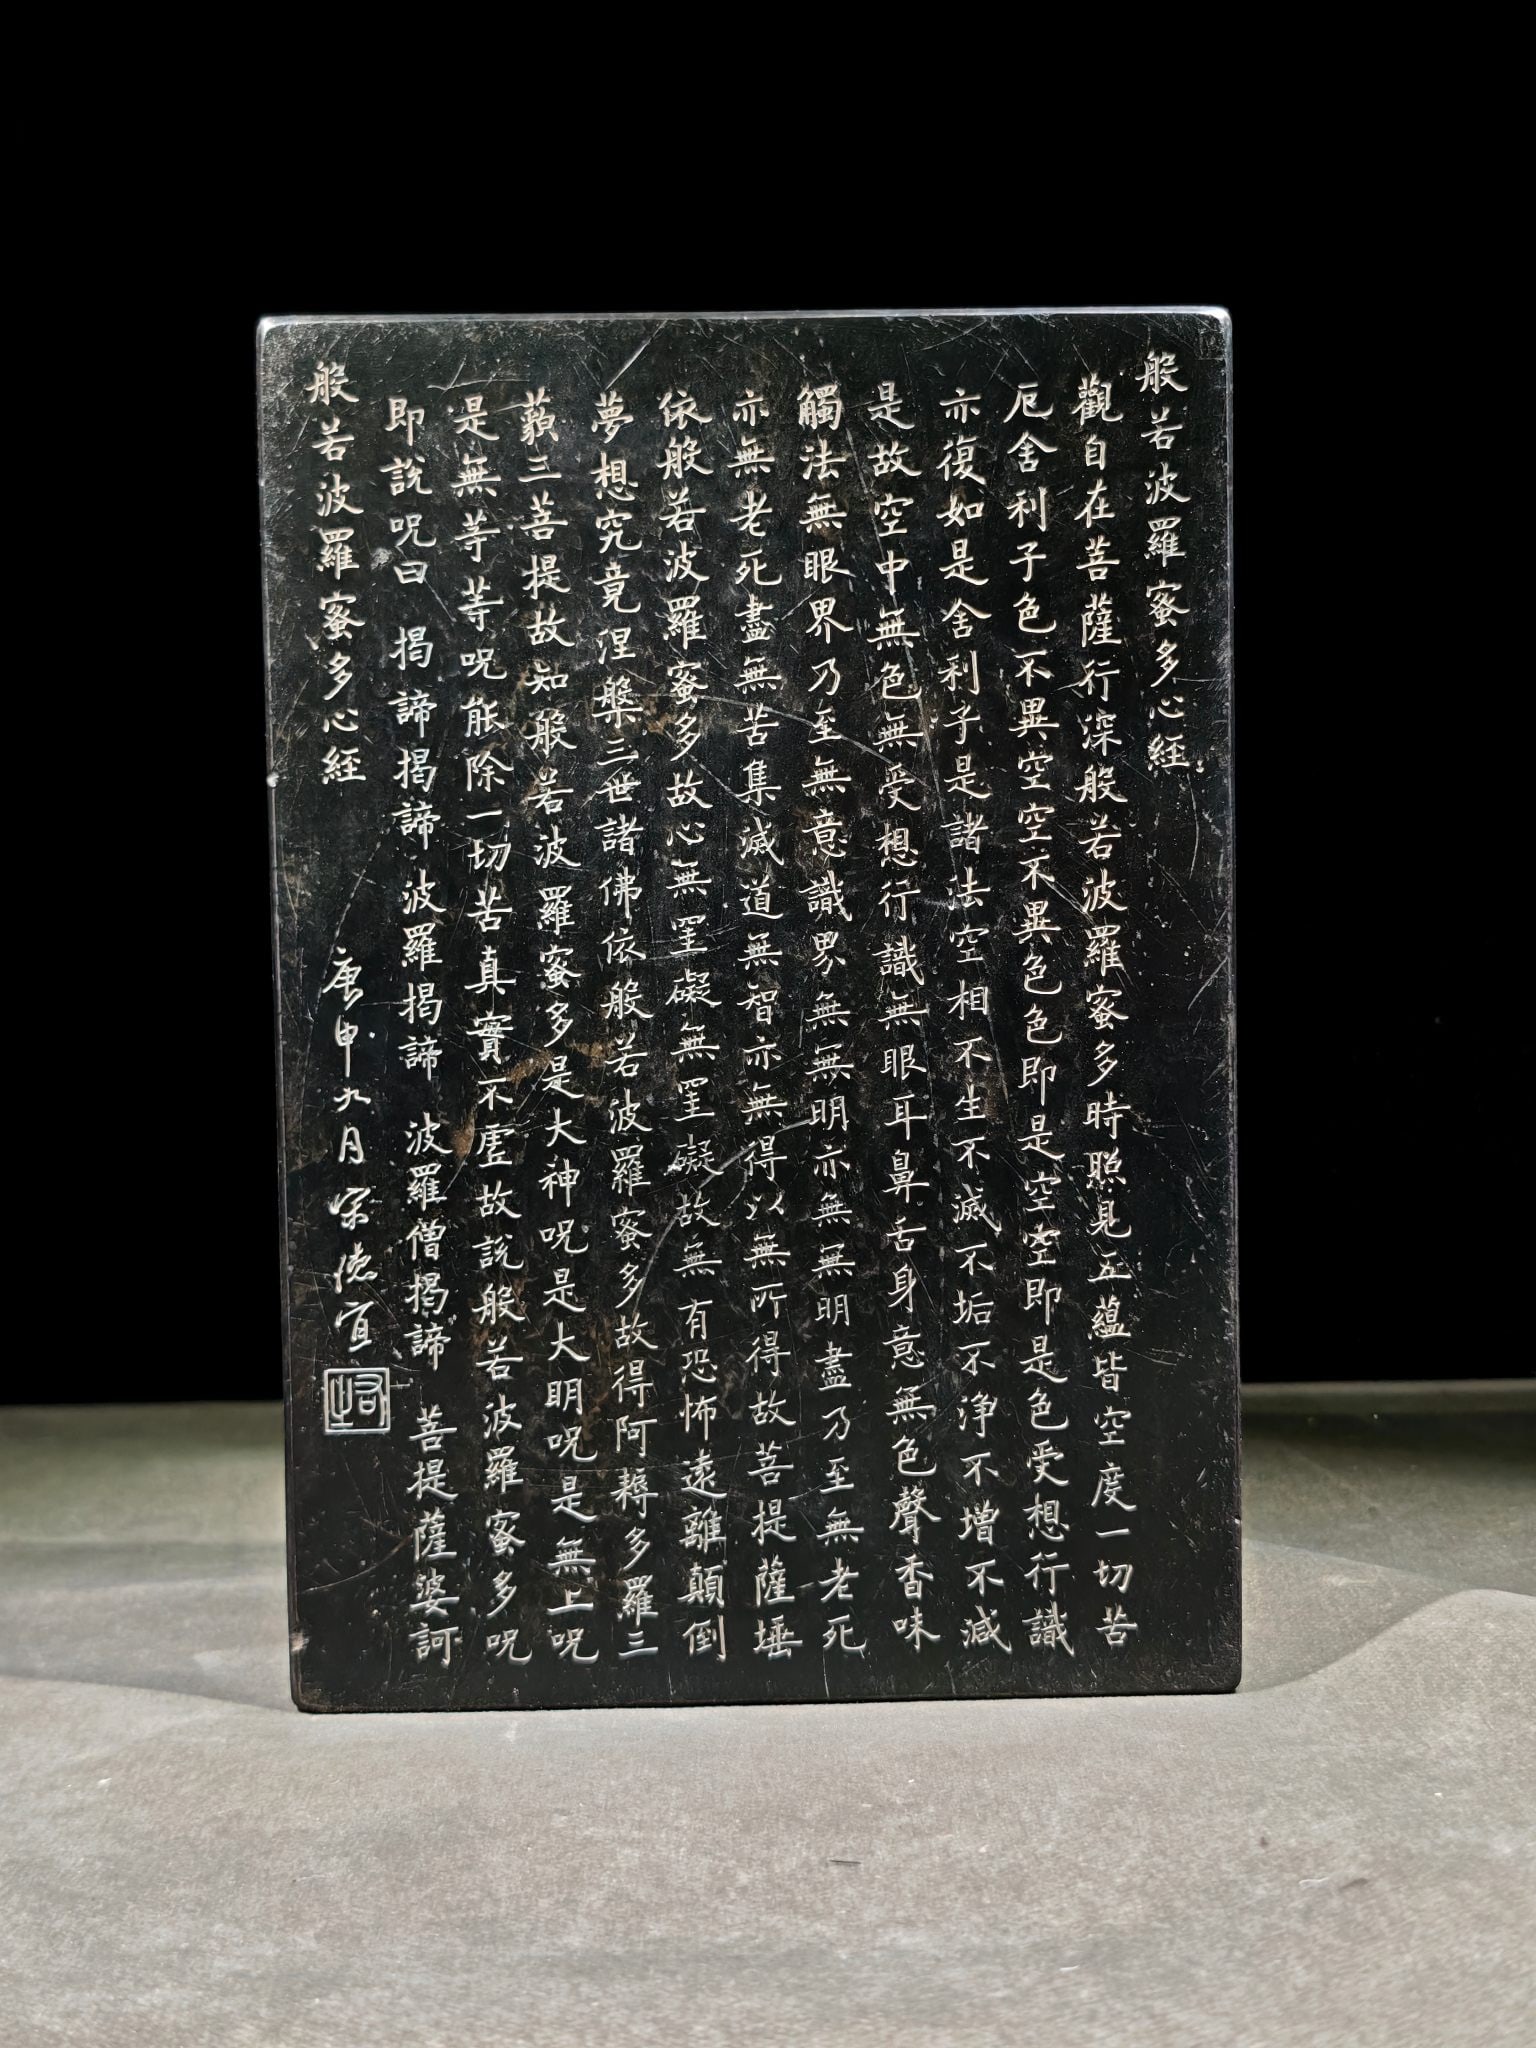 般若波羅蜜多心経
觀自在菩薩行深般若波羅蜜多時照見五蘊皆空度一切苦
厄舍利子色不異空空不異色色即是空空即是色受想行識
亦復如是舍利子是諸法空相不生不滅不垢不淨不增不減
是故空中無色無受想行識無眼耳鼻舌身意無色聲香味
觸法無眼界乃至無意識界無無明亦無無明盡乃至無老死
亦無老死盡無苦集滅道無智亦無得以無所得故菩提薩埵
依般若波羅蜜多故心無罣礙無罣礙故無有恐怖遠離顛倒
夢想究竟涅槃三世諸佛依般若波羅蜜多故得阿耨多羅三
藐三菩提故知般若波羅蜜多是大神呪是大明呪是無上呪
是無等等呪能除一切苦真實不虛故説般若波羅蜜多呪
即説呪曰 揭諦揭諦 波羅揭諦 波羅僧揭諦 菩提薩婆訶
般若波羅蜜多心経
庚申九月宋德宜